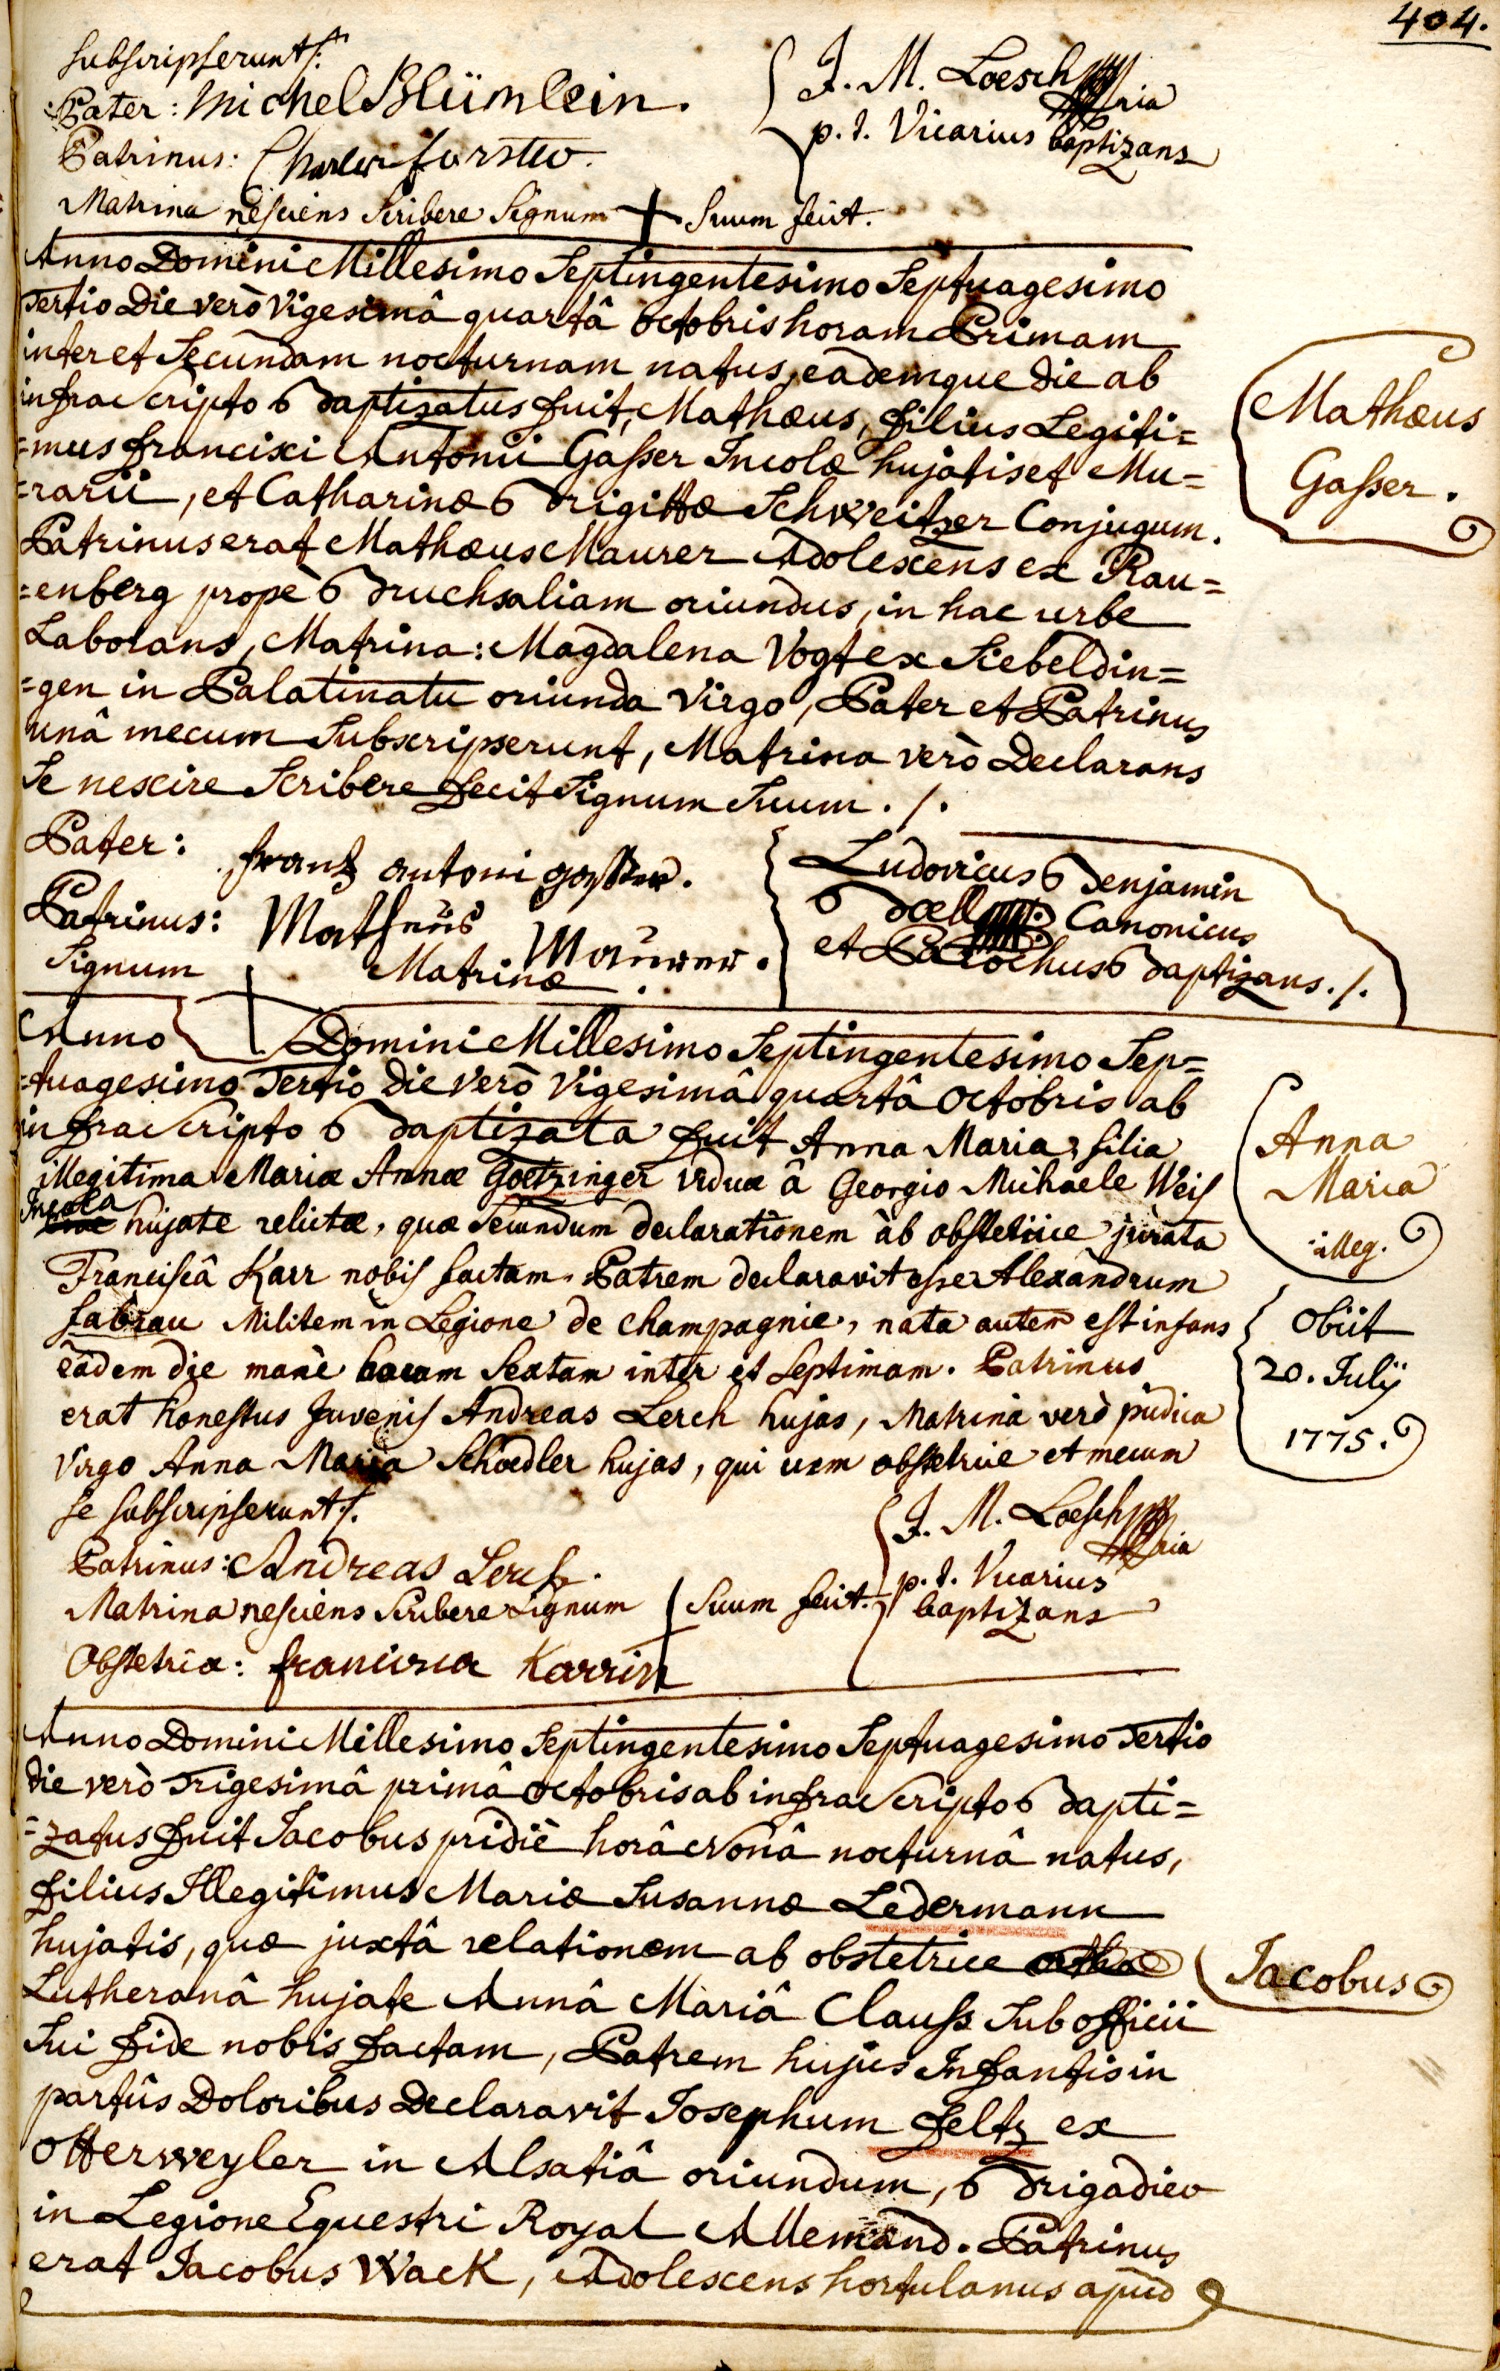 404.
subscripserunt.
Pater: Michel Blümlein.
Patrinus: Charles forster.
Matrina nesciens Scribere Signum + Suum fecit.
J. M. Loesch
p. t. Vicarius baptizans
Anno Domini Millesimo Septingentesimo Septuagesimo
Tertio Die verò Vigesimâ quartâ octobris horam Primam
inter et Secundam nocturnam natus, eâdemque die ab
infrascripto Baptizatus fuit, Mathæus, filius Legiti=
=mus francisci Antonii Gasser Incolæ hujatis et Mu=
=rarii, et Catharinæ Brigittæ Schweitzer Conjugum.
Patrinus erat Mathæus Maurer Adolescens ex Rau=
=enberg propè Bruchsaliam oriundus, in hac urbe
Laborans, Matrina: Magdalena Vogt ex Siebeldin=
=gen in Palatinatu oriunda Virgo, Pater et Patrinus
unâ mecum Subscripserunt, Matrina verò Declarans
Se nescire Scribere fecit Signum Suum ./.
Mathæus
Gasser.
Pater: frantz antoni gasser.
Patrinus: Matheus Maurer.
Signum Matrinæ.
Ludovicus Benjamin
Boell Canonicus
et Parochus Baptizans ./.
Anno Domini Millesimo Septingentesimo Sep=
=tuagesimo Tertio Die Verò Vigesimâ quartâ Octobris ab
infrascripto Baptizata fuit Anna Maria, filia
illegitima Mariæ Annæ Goetzinger viduæ â Georgio Michaele Weis
Incola hujate relictæ, quæ secundum declarationem ab obstetrice jurata
Franciscâ Karr nobis factam, Patrem declaravit esse Alexandrum
fabrau Militem in Legione de Champagnie, nata autem est infans
eâdem die manè horam Sextam inter et Septimam. Patrinus
erat honestus Juvenis Andreas Lerch hujas, Matrina verò pudica
Virgo Anna Maria Schoedler hujas, qui cum obstetrice et mecum
se subscripserunt.
Anna
Maria
illeg.
Obiit
20. Julij
1775.
Patrinus: Andreas Lerch.
Matrina nesciens Scribere Signum Suum fecit.
Obstetrix: francisca Karrin
J. M. Loesch
p. t. Vicarius
baptizans
Anno Domini Millesimo Septingentesimo Septuagesimo Tertio
die verò Trigesimâ primâ octobris ab infrascripto Bapti=
=zatus fuit Jacobus pridiè horâ Nonâ nocturnâ natus,
filius Illegitimus Mariæ Susannæ Ledermann
hujatis, quæ juxtâ relationem ab obstetrice
Lutheranâ hujate Annâ Mariâ Clauss Sub officii
Sui fide nobis factam, Patrem hujus Infantis in
partûs Doloribus Declaravit Josephum feltz ex
otterweyler in Alsatiâ oriundum, Brigadier
in Legione Equestri Royal Allemand. Patrinus
erat Jacobus Wack, Adolescens hortulanus apud
Jacobus